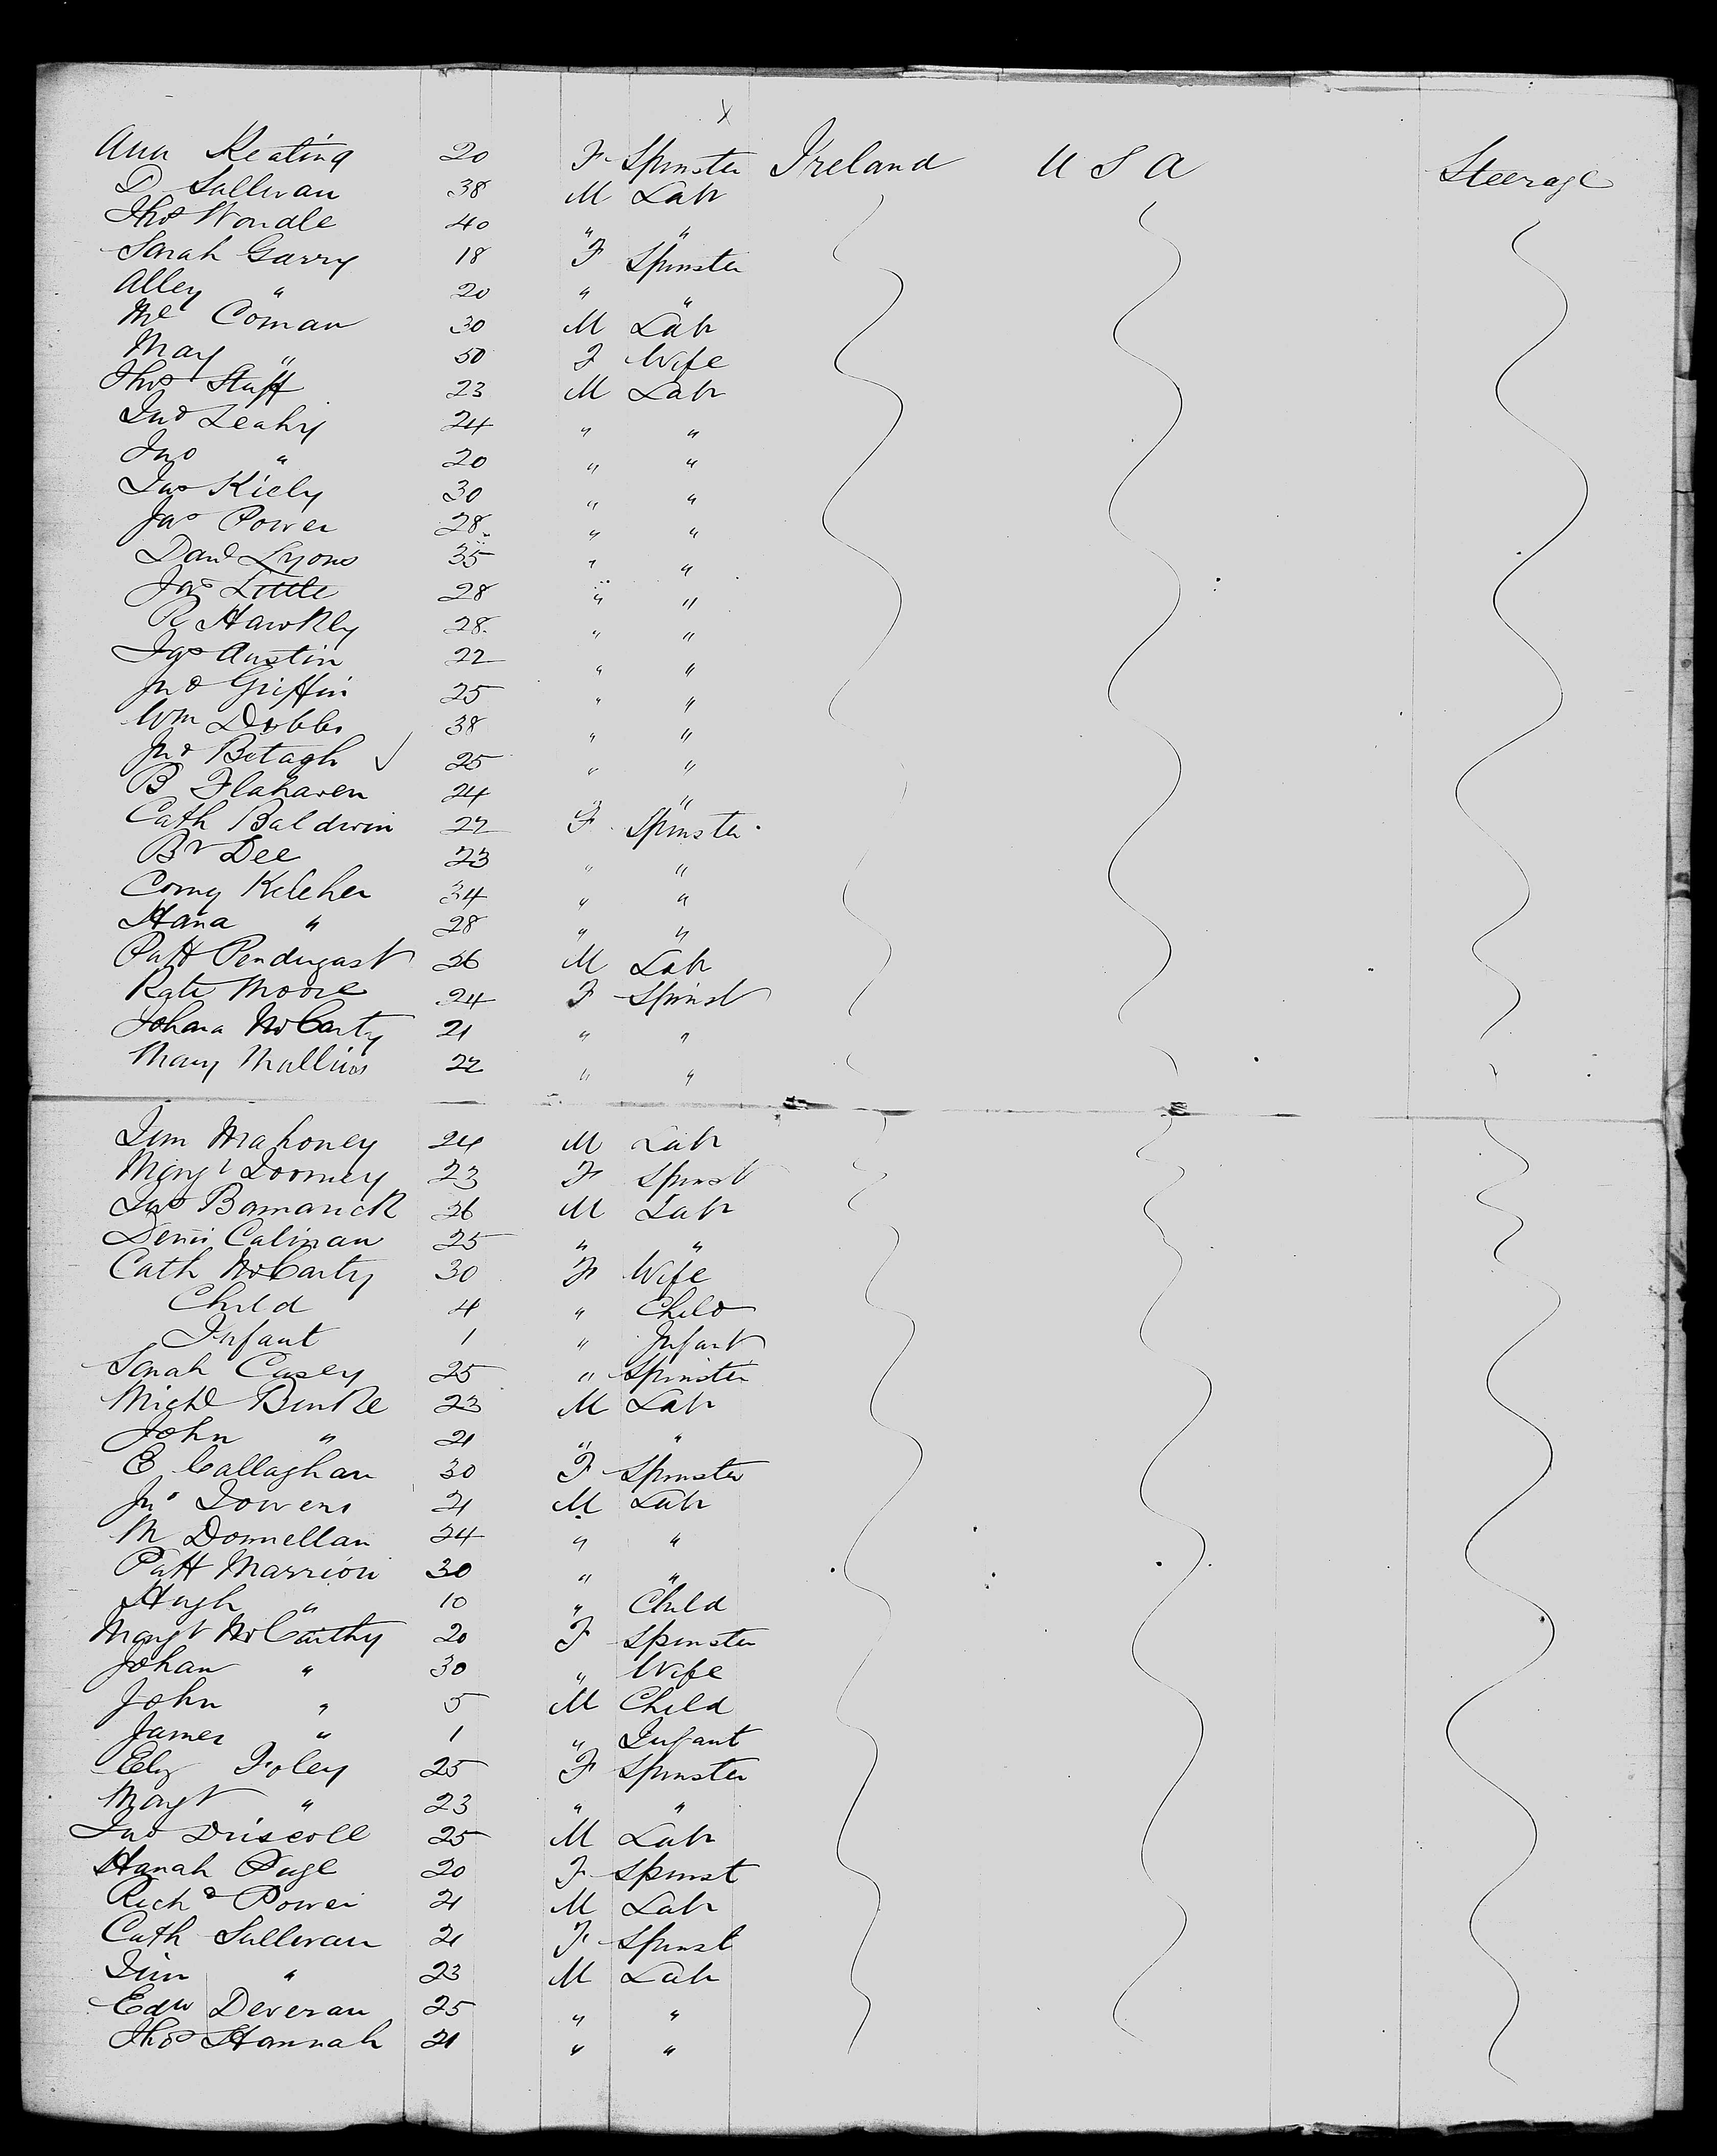 x
Ann Keating 20 F Spinster Ireland U S A Steerage
D Sullivan 38 M Labr
Thos Wondle 40 " "
Sarah Garry 18 F Spinster
Alley " 20 " "
Ml Coman 30 M Labr
Mary " 50 F Wife
Thos Stuff 23 M Labr
Jno Leahy 24 " "
Jno " 20 " "
Jas Kiely 30 " "
Jas Power 28 " "
Danl Lyons 35 " "
Jas Little 28 " "
R Hawkly 28 " "
Jas Austin 22 " "
Jno Griffin 25 " "
Wm Dobbs 38 " "
Jno Betagh ✓ 25 " "
B Flahaven 24 " "
Cath Baldwin 22 F Spinster
Br Dee 23 " "
Corny Keleher 34 " "
Hana " 28 " "
Patt Pendergast 26 M Labr
Kate Moore 24 F Spinst
Johana McCarty 21 " "
Mary Mullins 22 " "
Tim Mahoney 24 M Labr
Margt Toomey 23 F Spinst
Jas Bamarick 26 M Labr
Denis Calinan 25 " "
Cath McCarty 30 F Wife
Child 4 " Child
Infant 1 " Infant
Sarah Casey 25 " Spinster
Michl Burke 23 M Labr
John " 21 " "
E Callaghan 30 F Spinster
Jno Towers 21 M Labr
M Donnellan 24 " "
Patt Marrion 30 " "
Hugh " 10 " Child
Margt McCarthy 20 F Spinster
Johan " 30 " Wife
John " 5 M Child
James " 1 " Infant
Eliz Foley 25 F Spinster
Margt " 23 " "
Jno Driscoll 25 M Labr
Hanah Page 20 F Spinst
Richd Power 21 M Labr
Cath Sullivan 21 F Spinst
Tim " 23 M Labr
Edw Deveran 25 " "
Thos Hannah 21 " "